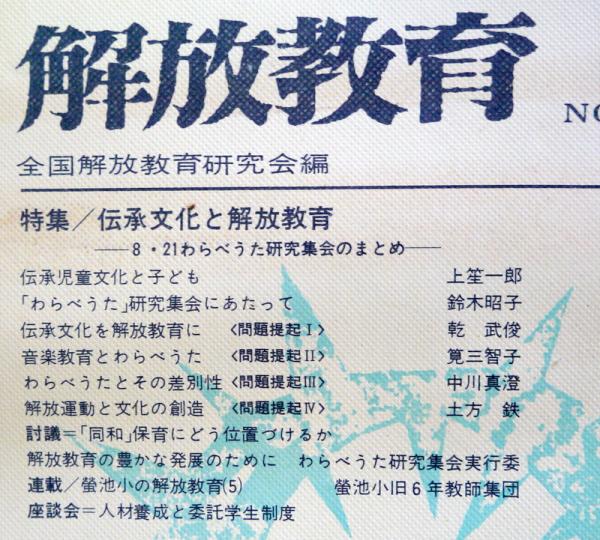 解放教育
NO
全国解放教育研究会編
特集／伝承文化と解放教育
――8・21わらべうた研究集会のまとめ――
伝承児童文化と子ども 上笙一郎
「わらべうた」研究集会にあたって 鈴木昭子
伝承文化を解放教育に 〈問題提起Ⅰ〉 乾 武俊
音楽教育とわらべうた 〈問題提起Ⅱ〉 筧三智子
わらべうたとその差別性 〈問題提起Ⅲ〉 中川真澄
解放運動と文化の創造 〈問題提起Ⅳ〉 土方 鉄
討議＝「同和」保育にどう位置づけるか
解放教育の豊かな発展のために わらべうた研究集会実行委
連載／螢池小の解放教育(5) 螢池小旧6年教師集団
座談会＝人材養成と委託学生制度